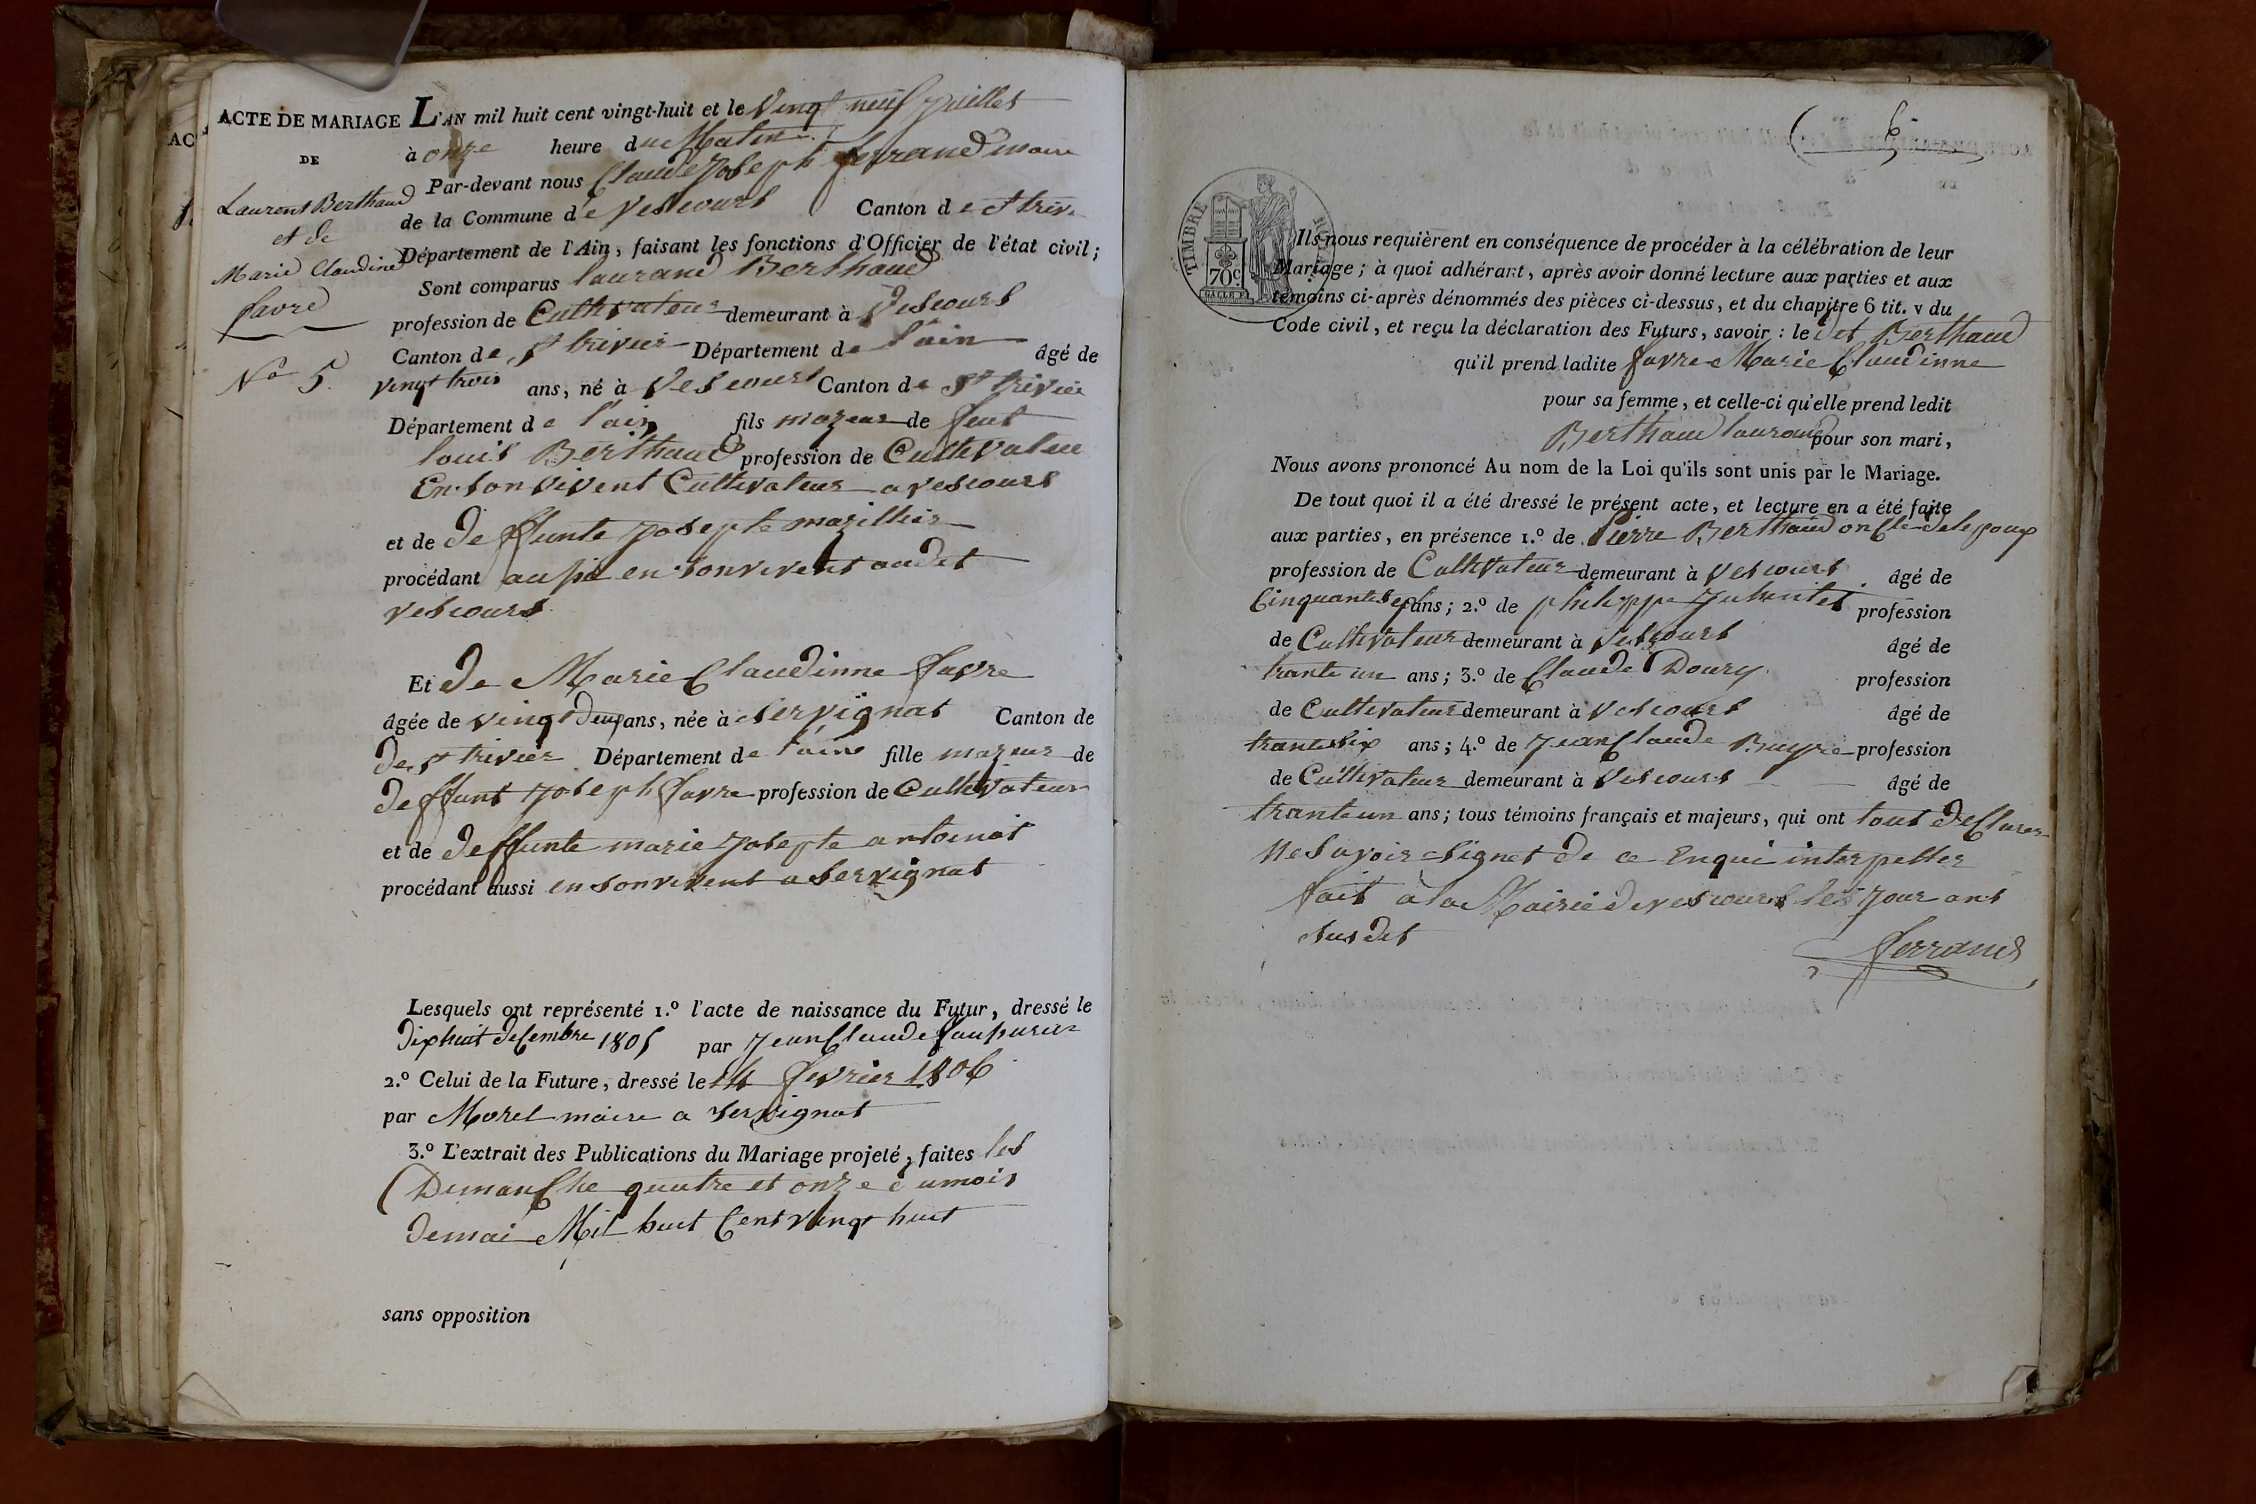 ACTE DE MARIAGE
DE
Laurent Berthaud
et de
Marie Claudine
favre
No 5.
L'AN mil huit cent vingt-huit et le Vingt neuf juillet
à onze heure du Matin
Par-devant nous Claude Joseph ferrand maire
de la Commune de Vescours Canton de St triv.
Département de l'Ain, faisant les fonctions d'Officier de l'état civil;
Sont comparus laurand Berthaud
profession de Cultivateur demeurant à Vescours
Canton de St trivier Département de l'ain âgé de
vingt trois ans, né à Vescours Canton de St trivier
Département de l'ain fils mageur de feut
louis Berthaud profession de Cultivateur
En son vivent Cultivateur a vescours
et de deffunte josephte
procédant en son vivent audit
vescours
Et de Marie Claudinne favre
âgée de vingt deux ans, née à Servignat Canton de
de St trivier Département de l'ain fille mageur de
deffunt joseph favre profession de Cultivateur
et de deffunte marie josephte antoinat
procédant aussi en son vivent a servignat
Lesquels ont représenté 1.º l'acte de naissance du Futur, dressé le
dix huit decembre 1805 par jean Claude
2.º Celui de la Future, dressé le 14 fevrier 1806
par Morel maire a servignat
3.º L'extrait des Publications du Mariage projeté, faites les
Dimanche quatre et onze du mois
de mai Mil huit Cent vingt huit
sans opposition
6
TIMBRE ROYAL
70c
Ils nous requièrent en conséquence de procéder à la célébration de leur
Mariage; à quoi adhérant, après avoir donné lecture aux parties et aux
témoins ci-après dénommés des pièces ci-dessus, et du chapitre 6 tit. v du
Code civil, et reçu la déclaration des Futurs, savoir : le dit Berthaud
qu'il prend ladite favre Marie Claudinne
pour sa femme, et celle-ci qu'elle prend ledit
Berthaud laurand pour son mari,
Nous avons prononcé Au nom de la Loi qu'ils sont unis par le Mariage.
De tout quoi il a été dressé le présent acte, et lecture en a été faite
aux parties, en présence 1.º de Pierre Berthaud oncle de lepoux
profession de Cultivateur demeurant à Vescours âgé de
Cinquante sept ans; 2.º de philippe profession
de Cultivateur demeurant à Vescours âgé de
trante un ans; 3.º de Claude Doury profession
de Cultivateur demeurant à Vescours âgé de
trante six ans; 4.º de jean Claude Bruyre profession
de Cultivateur demeurant à Vescours âgé de
trante un ans; tous témoins français et majeurs, qui ont tout declarer
Ne savoir signet de ce Enqui interpeller
fait à la Mairie de vescours les jour ans
sus dit
ferrand